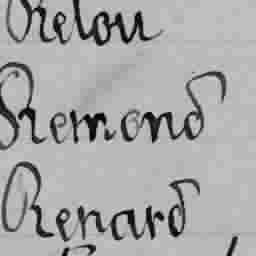 Relou
Remond
Renard